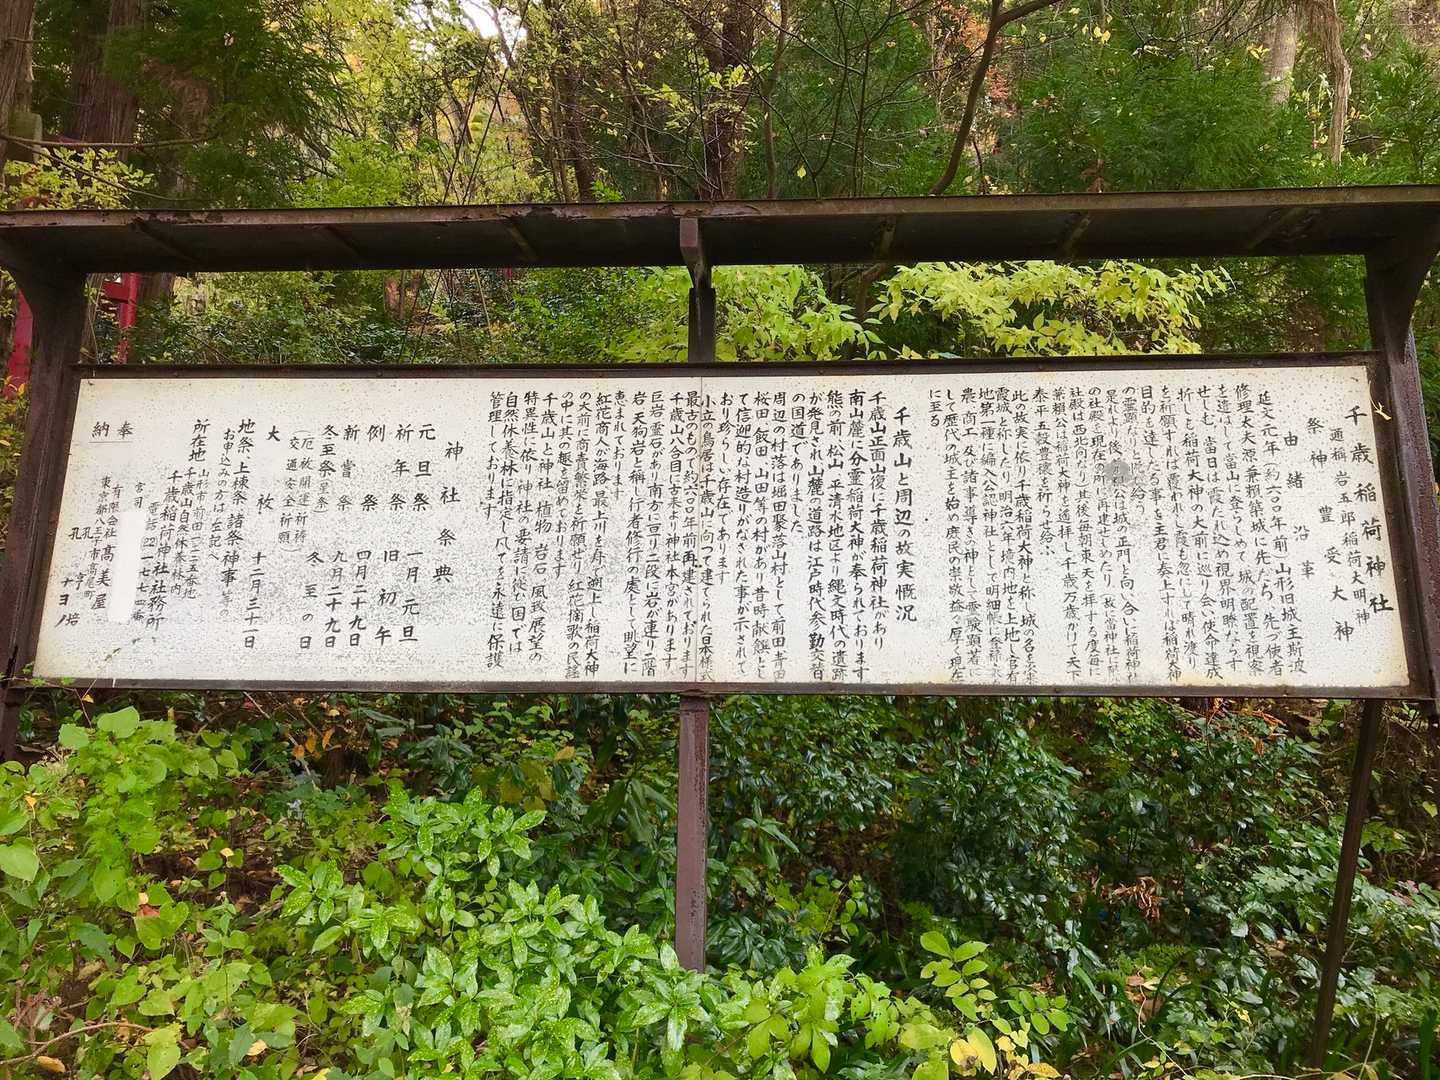 千歳稲荷神社
通稱 岩五郎稲荷大明神
祭神 豊受大神
由緒沿革
延文元年(約六〇〇年前)山形旧城主斯波
修理太夫源兼頼築城に先だち、先づ使者
を遣はして當山に登らしめて、城の配置を視察
せしむ、當日は霞たれ込め視界明瞭ならず
折しも稲荷大神の大前に巡り会、使命達成
を祈願すれば覆われし霞も忽にして晴れ渡り
目的を達したる事を主君に奏上すれば稲荷大神
の霊顕なりと
是れより後、公は城の正門と向い合いに稲荷神社
の社殿を現在の所に再建せしめたり(故に當神社に限り
社殿は西北向なり)其後毎朝東天を拝する度毎に
兼頼公は稲荷大神を遥拝し千歳万歳かけて天下
泰平五穀豊穣を祈らせ給ふ
此の故実に依り千歳稲荷大神と称し城の名を
霞城と称したり、明治六年境内地を上地し官有
地第一種に編入公認神社として明細帳に登録
農、商工、及び諸事導きの神として霊験顕著に
して歴代の城主を始め庶民の崇敬益々厚く現在
に至る
千歳山と周辺の故実概況
千歳山正面山復に千歳稲荷神社があり
南山麓に分霊稲荷大神が奉られております
熊の前、松山、平清水地区より縄文時代の遺跡
が発見され山麓の道路は江戸時代参勤交替
の国道でありました
周辺の村落は堀田聚落山村として前田 青田
桜田 飯田 山田 等の村があり昔時献饌とし
て信迎的な村造りがなされた事が示されて
おり珍らしい存在であります
小立の鳥居は千歳山に向つて建てられた日本様式
最古のもので約六〇〇年前再建されております
千歳山八合目に古来より神社本宮があります
巨岩霊石があり南方に百り二段に岩が連り二階
岩天狗岩と稱し行者修行の處として眺望に
恵まれております
紅花商人が海路、最上川を舟で遡上し稲荷大神
の大前に商賣繁栄を祈願せり紅花摘歌の民謡
の中に其の趣を留めております
千歳山と神社、植物、岩石、風致、展望の
特異性に依り神社の要請に従い国では
自然休養林に指定し凡てを永遠に保護
管理しております
神社祭典
元旦祭 一月元旦
祈年祭 旧初午
例祭 四月二十九日
新嘗祭 九月二十九日
冬至祭(星祭) 冬至の日
(厄祓開運祈祷
交通安全祈願)
大祓 十二月三十一日
地祭、上棟祭、諸祭神事等の
お申込みの方は左記へ
所在地 山形市前田二ー二五番地
千歳山自然休養林内
千歳稲荷神社社務所
電話(22)一七七四番
奉納 有限会社 高美屋
東京都八王子市高尾町